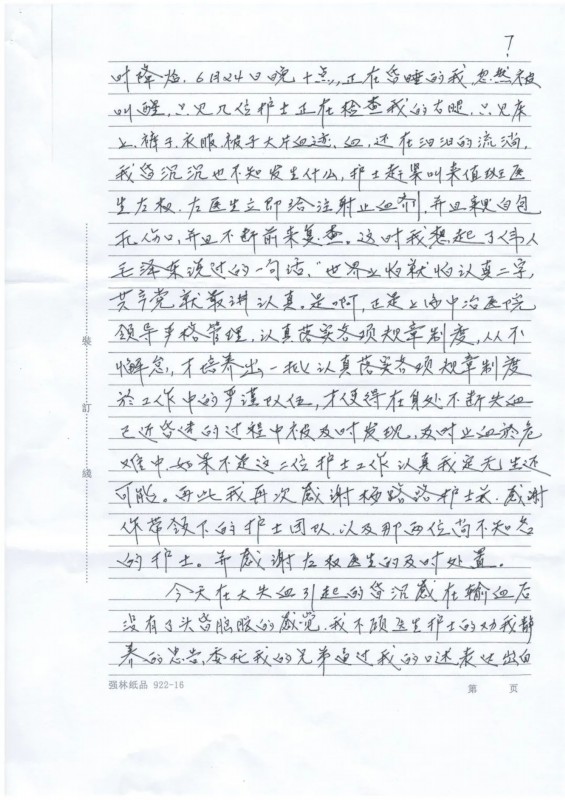 7
叶降临,6月24日晚十点,正在昏睡的我,忽然被
叫醒,只见几位护士正在检查我的右腿,只见床
上、裤子、衣服、被子大片血迹,血,还在汩汩的流淌,
我昏沉沉也不知发生什么,护士赶紧叫来值班医
生左权,左医生立即给注射止血剂,并且亲自包
扎伤口,并且不断前来复查。这时我想起了伟人
毛泽东说过的一句话,"世界上怕就怕认真二字,
共产党就最讲认真。是啊,正是上海中冶医院
领导严格管理,认真落实各项规章制度,从不
懈怠,才培养出一批认真落实各项规章制度
於工作中的严谨队伍,才使得在身处不断失血
已近昏迷的过程中被及时发现,及时止血於危
难中,如果不是这二位护士工作认真我定无生还
可能。再此我再次感谢杨路路护士长,感谢
你带领下的护士团队,以及那两位尚不知名
的护士。并感谢左权医生的及时处置。
今天在大失血引起的昏沉感在输血后
没有了头昏脑胀的感觉,我不顾医生护士的劝我静
养的忠告,委托我的兄弟通过我的口述,表达出自
装
订
线
强林纸品 922-16
第 页